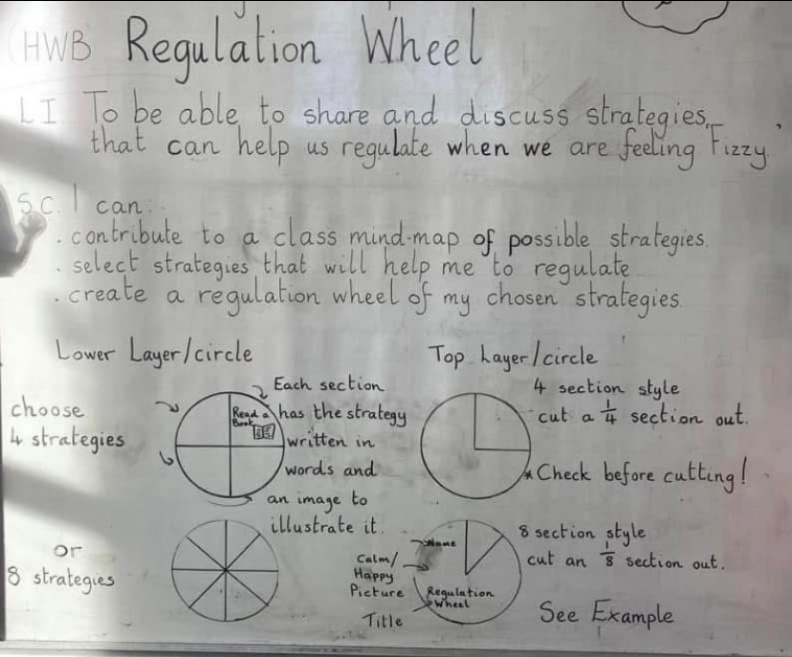 HWB Regulation Wheel
LI To be able to share and discuss strategies,
that can help us regulate when we are feeling Fizzy.
S.C. I can:
. contribute to a class mind-map of possible strategies.
. select strategies that will help me to regulate
. create a regulation wheel of my chosen strategies.
Lower Layer/circle
choose
4 strategies
Read a
Book
Each section
has the strategy
written in
words and
an image to
illustrate it.
or
8 strategies
Top Layer/circle
4 section style
cut a 1/4 section out.
*Check before cutting!
Name
Calm/
Happy
Picture
Regulation
Wheel
Title
8 section style
cut an 1/8 section out.
See Example